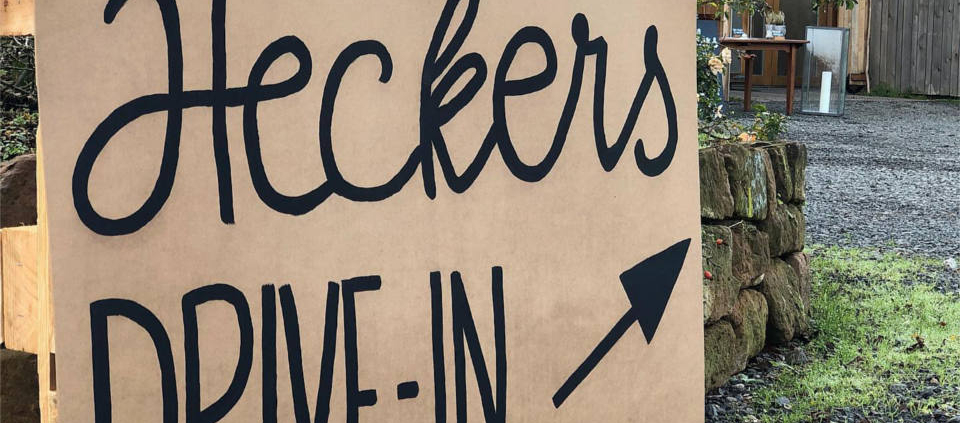 Heckers
DRIVE-IN